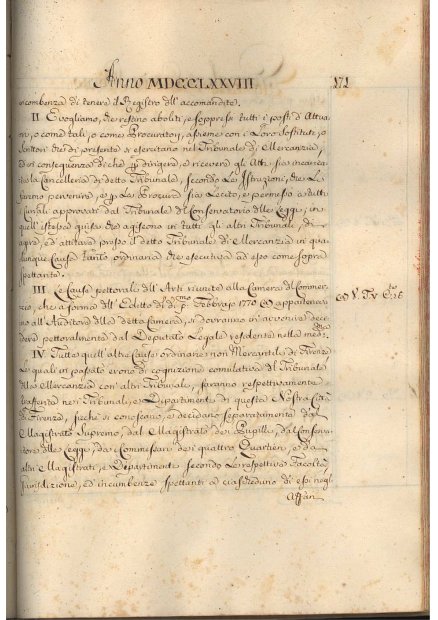 Anno MDCCLXXVIII. 171
incombenza di tenere il Registro dell' accomandite.
II. E vogliamo, che restino aboliti, e soppressi tutti i posti d'Attua
ri, o come tali, o come Procuratori, assieme con i Loro Sostituti, o
Scrittori che di presente si esercitano nel Tribunale di Mercanzia,
e di conseguenza di che dirigerà, e riceverà gli Atti sia incarica
ta la Cancelleria di detto Tribunale, secondo Le Istruzioni, che Le
saranno pervenire, e La Procura sia Lecito, e permesso a tutti
i Curiali approvati dal Tribunale del Conservatorio delle Leggi, in
quell' istessa guisa che agiscono in tutti gli altri Tribunali, di
agire, ed attitare presso il detto Tribunale di Mercanzia in qua
lunque Causa tanto ordinaria che esecutiva ad esso come sopra
spettante.
III. Le Cause pettorali dell' Arti riunite alla Camera di Commer
cio, che a forma dell' Editto di di p.mo Febbraio 1770 appartene
no all' Auditore della detta Camera, si dovranno in avvenire deci
dere pettoralmente dal Deputato Legale residente nella med.
IV. Tutte quell' altre Cause ordinarie non Mercantili di Firenze
Le quali in passato erano di cognizione cumulativa del Tribunale
della Mercanzia con altri Tribunali, saranno respettivamente
trasferite nei Tribunali, e Dipartimenti di questa Nostra Città
di Firenze, sicchè si conoscano, e decidano separatamente dal
Magistrato Supremo, dal Magistrato dei Pupilli, dal Conserva
tore delle Leggi, da' Commissari dei quattro Quartieri, e da
altri Magistrati, e Dipartimenti secondo Le respettive Facoltà,
Giurisdizione, ed incumbenze spettanti a ciascheduno di essi negli
Affari